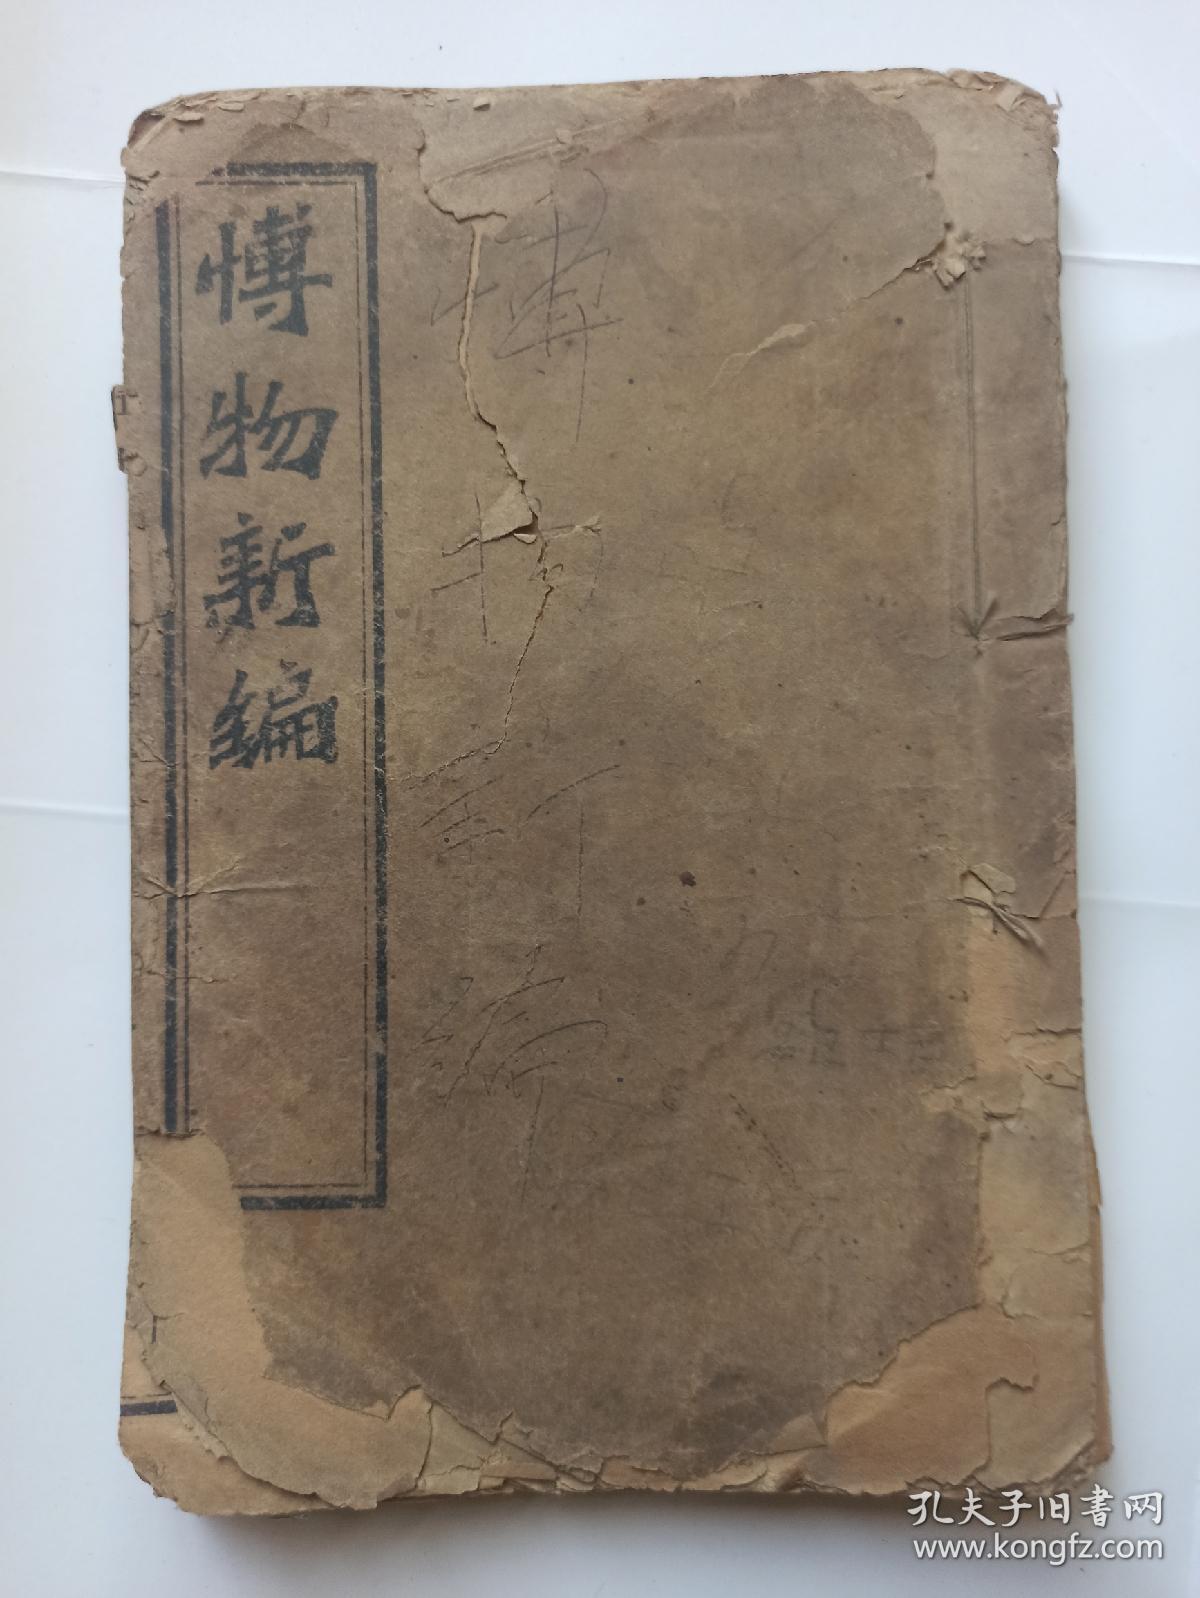 愽物新編
愽物新編
孔夫子旧书网
www.kongfz.com